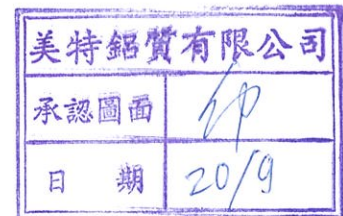 美特鋁質有限公司
承認圖面
日期 20/9